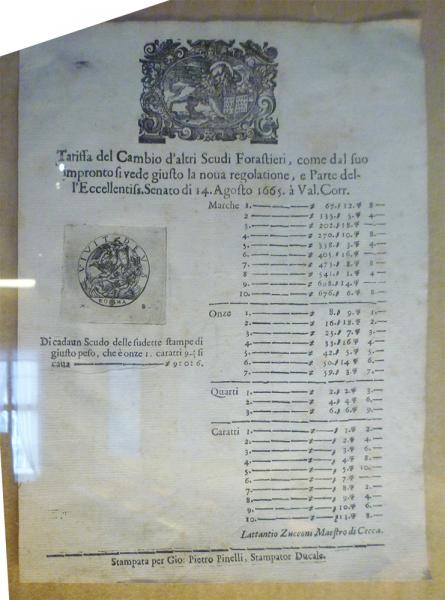 Tariffa del Cambio d'altri Scudi Forastieri, come dal suo
impronto si vede giusto la noua regolatione, e Parte del-
l'Eccellentiss. Senato di 14. Agosto 1665. à Val. Corr.
Marche 1. — 67. 12. 8—
2 — 135. 5. 4—
3. — 202. 18. —
4. — 270. 10. 8—
5. — 338. 3. 4—
6. — 405. 16. —
7. — 473. 8. 8—
8 — 541. 1. 4—
9. — 608. 14. —
10. — 676. 6. 8—
Onze 1. — 8. 9. 1—
2. — 16. 18. 2—
3. — 25. 7. 3—
4. — 33. 16. 4—
5. — 42. 5. 5—
6. — 50. 14. 6—
7. — 59. 3. 7—
Quarti 1. — 2. 2. 3—
2. — 4. 4. 6—
3. — 6. 6. 9—
Caratti 1. — 1. 2—
2. — 2. 4—
3. — 3. 6—
4. — 4. 8—
5. — 5. 10—
6. — 7. —
7. — 8. 2—
8. — 9. 4—
9. — 10. 6—
10. — 11. 8—
Di cadaun Scudo delle sudette stampe di
giusto peso, che è onze 1. caratti 9. si
caua — 9: 0: 6.
Lattantio Zucconi Maestro di Cecca.
Stampata per Gio: Pietro Pinelli, Stampator Ducale.